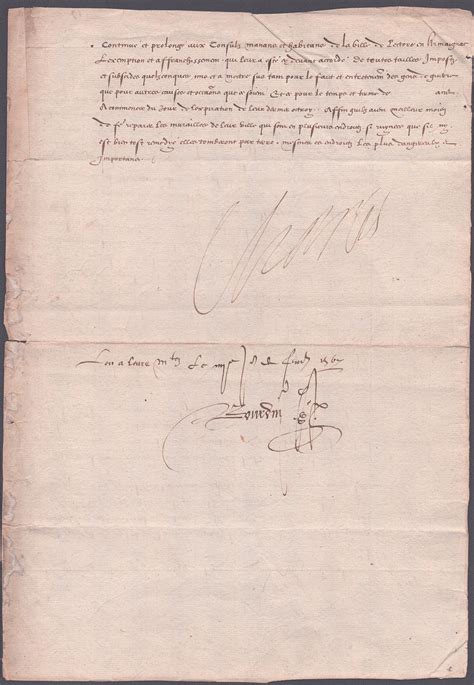 Continue et prolonge aux Consulz manans et habitans de la ville de Lectore en Armaignac
L'exemption et affranchissement qui leur a esté cy devant accordé de toutes tailles Impostz
et subsides quelzconques mis et a mectre sus tant pour le fait et entretenement des gens de guerre
que pour autres causes et occasions que ce soient Et ce pour le temps et terme de ans
A commencer du Jour de l'expiration de leur dernier octroy Affin qu'ilz aient meilleur moien
de fe reparer les murailles de leur ville qui sont en plusieurs endroictz si ruynees que s'il n'y
est bien tost remedié elles tomberont par terre mesmes es endroictz les plus dangereux et
importans
Charles
Bourdin